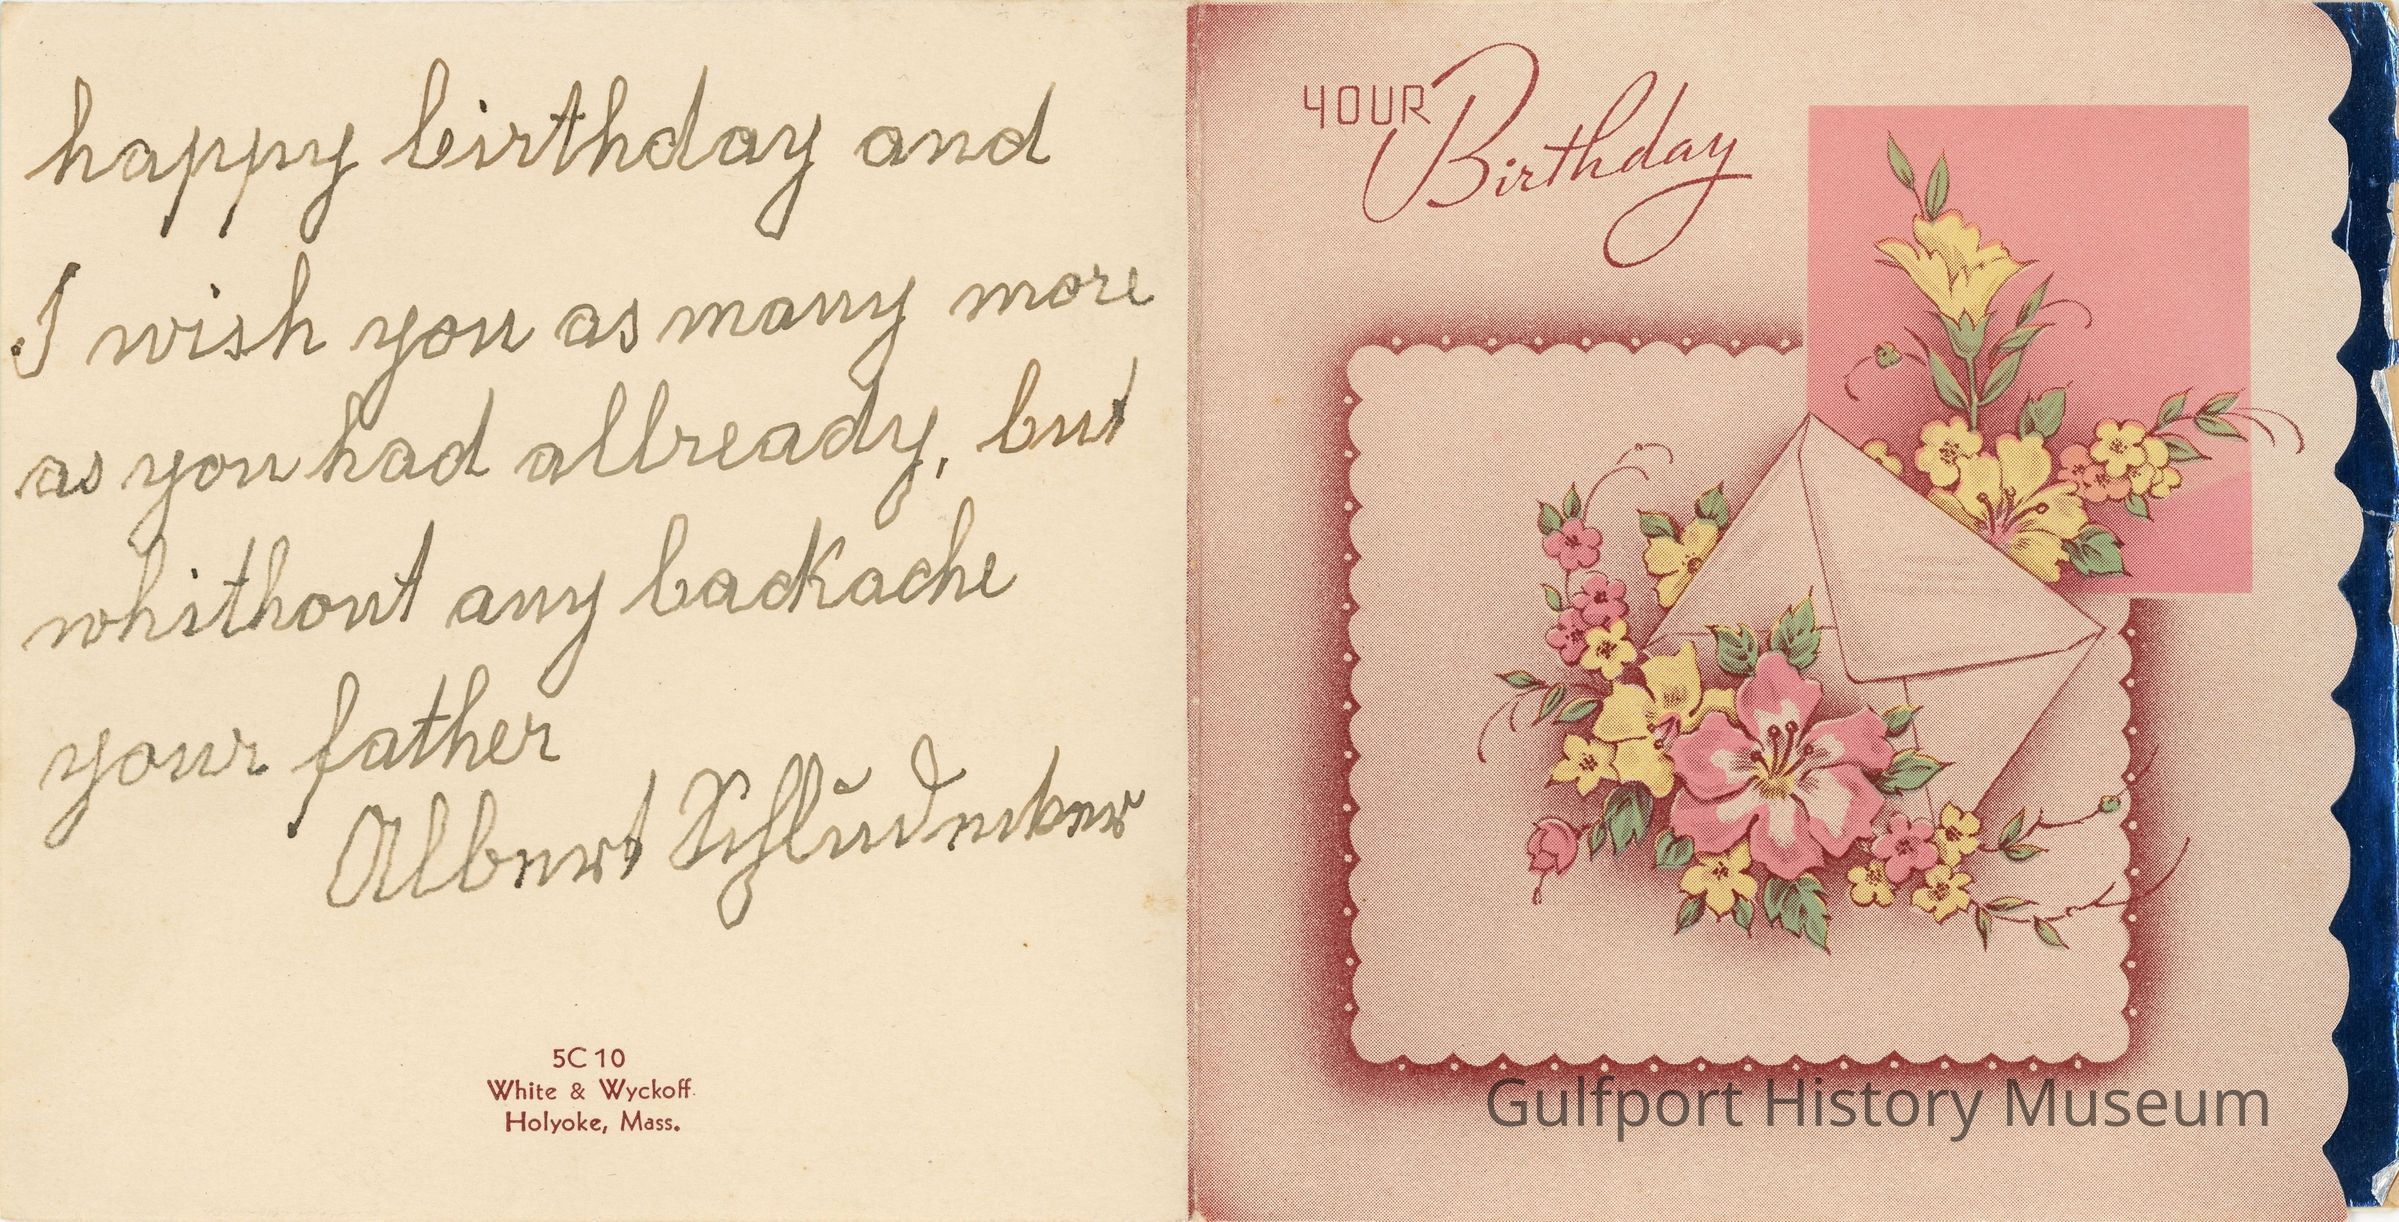 happy birthday and
I wish you as many more
as you had allready, but
whithout any backache
your father
Albert Schludecker
5C10
White & Wyckoff
Holyoke, Mass.
YOUR
Birthday
Gulfport History Museum